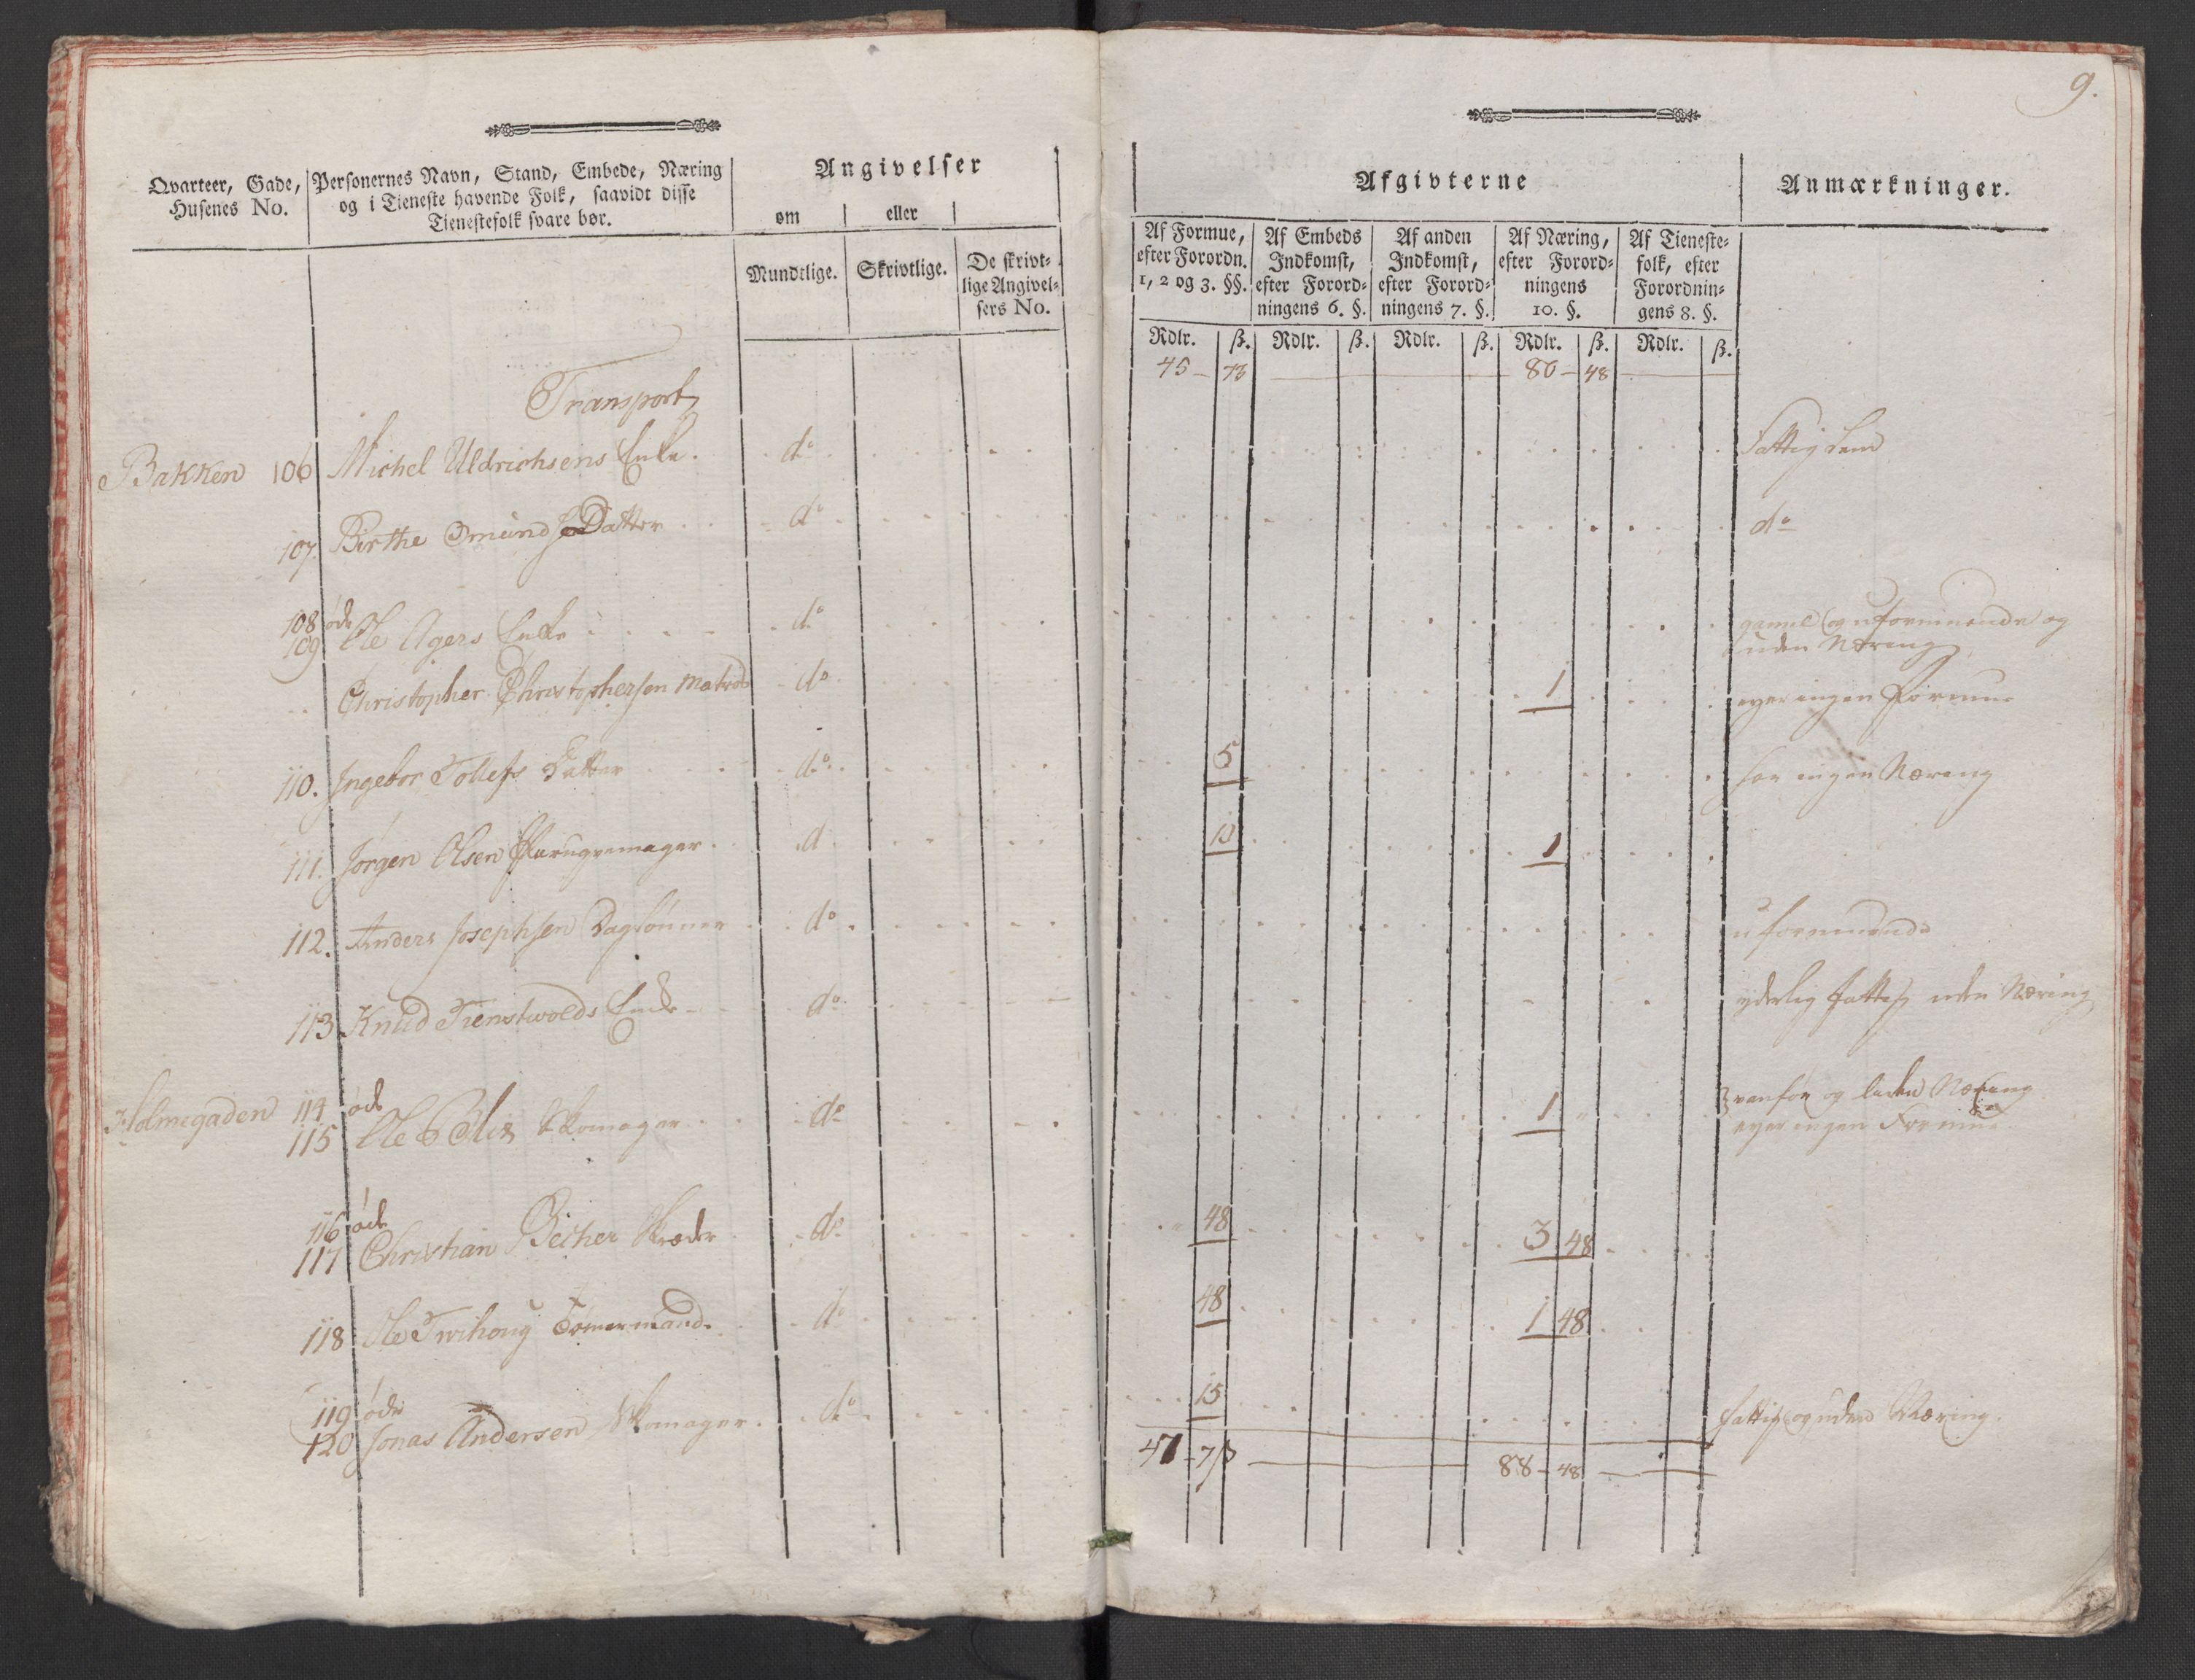 9.
Qvarteer, Gade, Husenes No.
Personernes Navn, Stand, Embede, Næring
og i Tieneste havende Folk, saavidt disse
Tienestefolk svare bør.
Angivelser
om eller
Mundtlige. Skrivtlige. De skrivt-
lige Angivel-
sers No.
Afgivterne
Anmærkninger.
Af Formue, efter Forordn. 1, 2 og 3. §§.
Af Embeds Indkomst, efter Forord-
ningens 6. §.
Af anden Indkomst, efter Forord-
ningens 7. §.
Af Næring, efter Forord-
ningens 10. §.
Af Tieneste-
folk, efter Forordnin-
gens 8. §.
Rdlr. ß. Rdlr. ß. Rdlr. ß. Rdlr. ß. Rdlr. ß.
Transport 45 73 80 48
Bakken 106 Michel Uldrichsens Enke do Fattig Lem
107. Birthe Omunds Datter do do
108 øde
109 Ole Agers Enke do gammel og uformuende og
uden Næring
Christopher Christophersen Matros do 1 eyer ingen Formue
110. Ingebor Tollefs Datter do 5 har ingen Næring
111. Jørgen Olsen Parugvemager d 10 1
112. Anders Josephsen Daglønner do uformuende
113 Knud Enke do yderlig fattig uden Næring
Holmegaden 114 øde
115 Ole Skomager do 1 vanfør og Næring
eyer ingen Formue
116 øde
117 Christian Becher Skræder do 48 3 48
118 Ole Tømmermand do 48 1 48
119 øde
120 Jonas Andersen Skomager do 15 fattig og uden Næring.
47 7 88 48